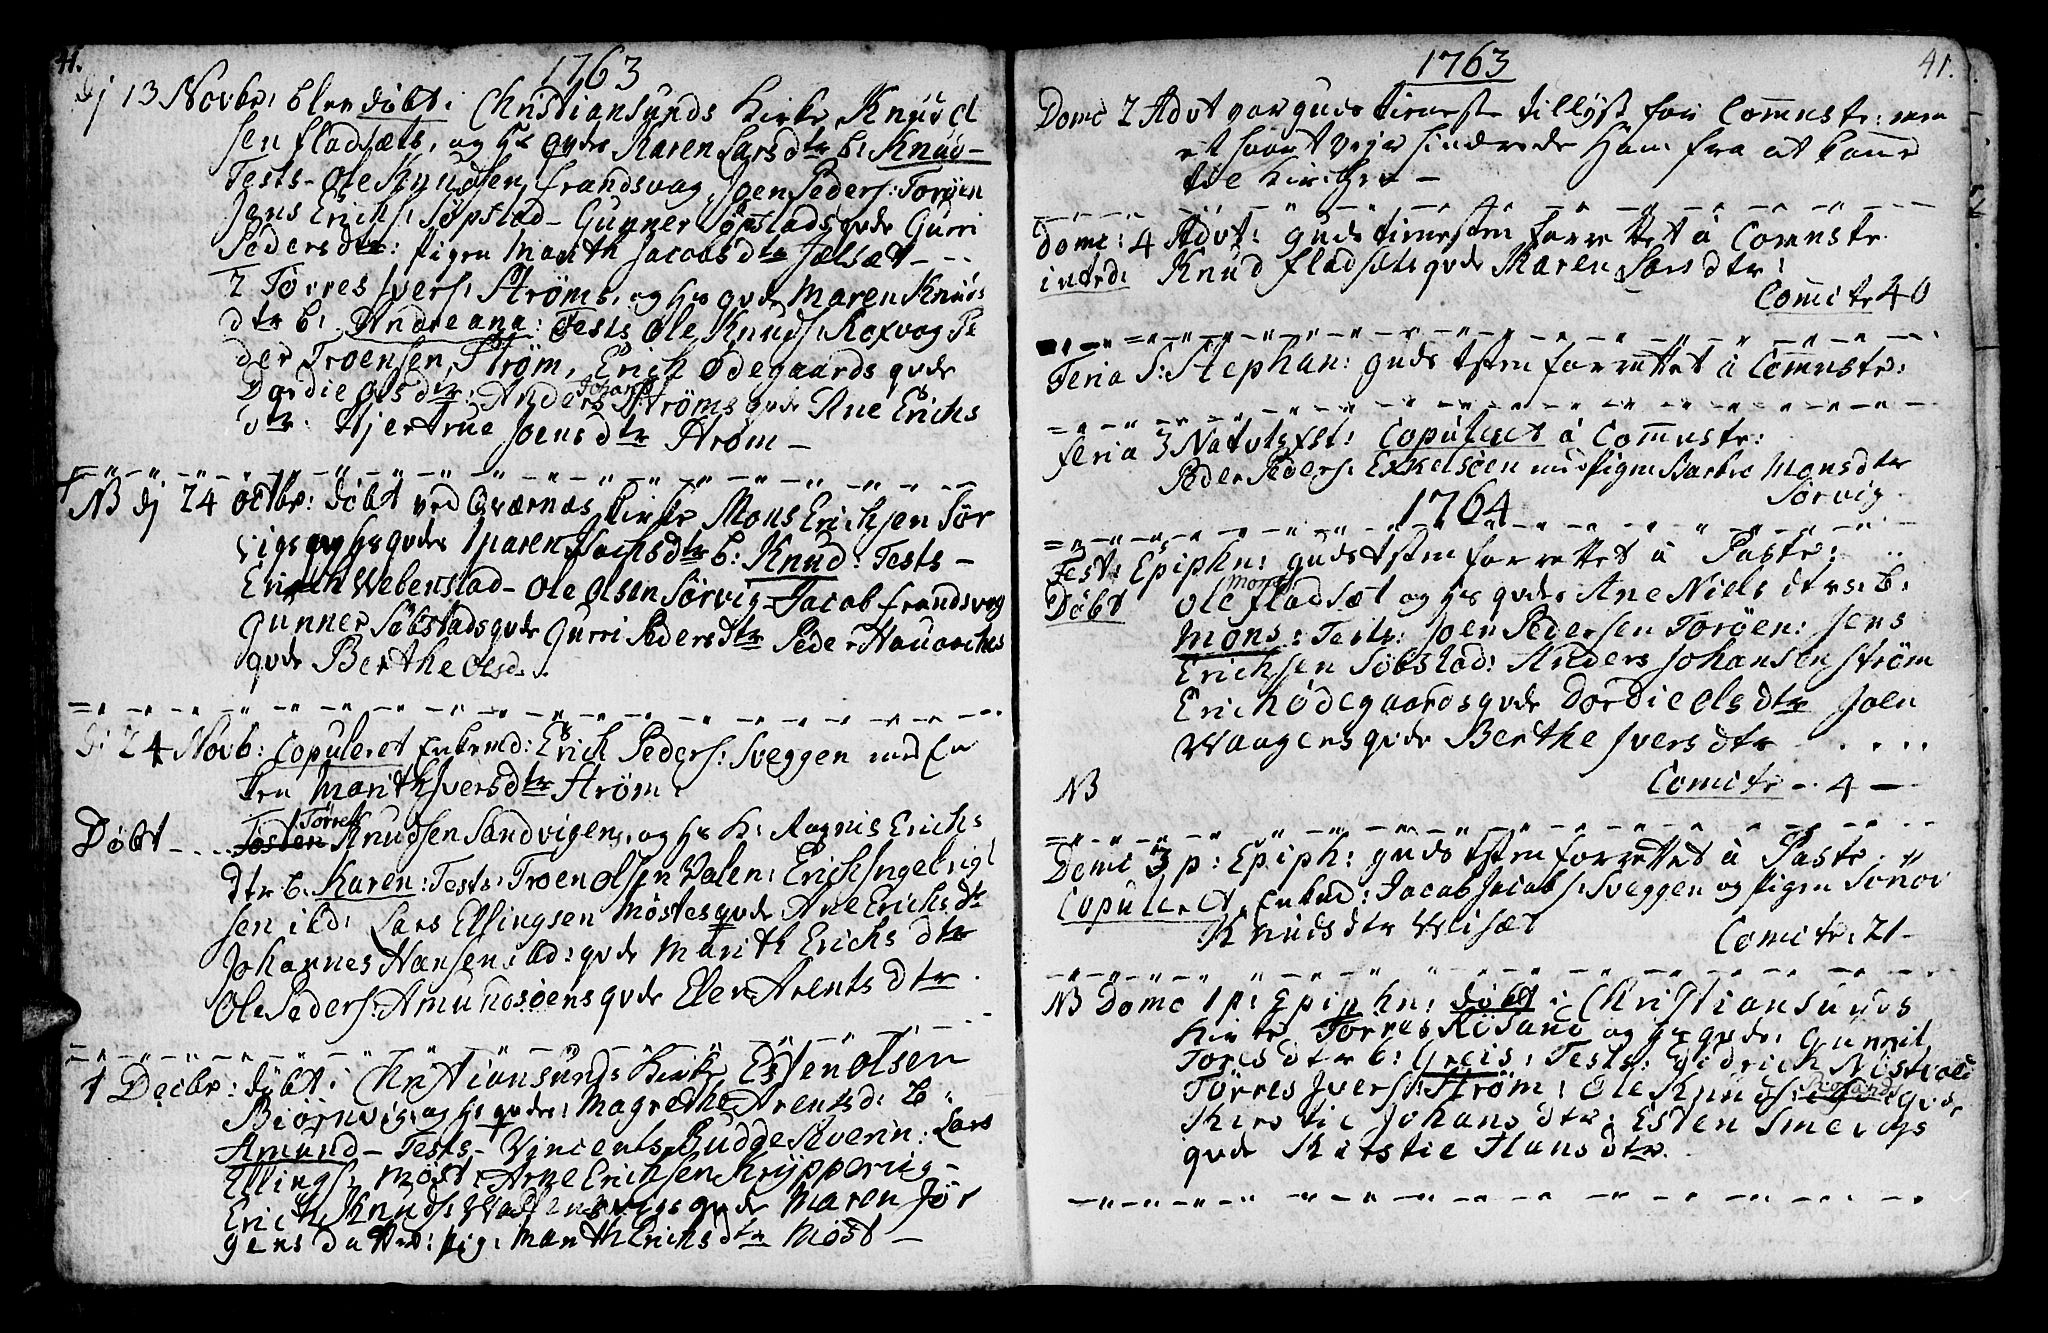 41.
1763
dj 13 Novbr: blev døbt i Christiansunds Kirke, Knud
sen fladsæts, og hs qvde Karen Larsdtr b: Knud-
Tests- Ole Knudsen frandsvog, Joen Peders: Torøen
Jens Erichs: Søpstad- Gunner Søpstads qvde Gurri
Pedersdtr: pigen Marith Jacobsdtr
2 Tørres Ivers: Strøms, og hs qvde Maren Knuds
dtr b: Andreana: Tests Ole Knuds: Roxvog Pe
der Troensen Strøm, Erich Ødegaards qvde
Dordie Olsdtr: Anders Johans: Strøms qvde Ane Erichs
dtr. Hjertrue Joensdtr Strøm-
NB dj 24 octbr: døbt ved Qværnæs Kirke Mons Erichsen Sør
vigs og hs qvde Maren dtr b: Knud: Tests-
Erich Webenstad- Ole Olsen Sørvig- Jacob frandsvog
Gunner Søbstads qvde Gurri Pedersdtr Peder
qvde Berthe Olsd:
dj 24 Novb: Copuleret Enkemd: Erich Peders: Sveggen med En
ken Marith Iversdtr Strøm.
Døbt- .. Tosten Tørres Knudsen Sandvigens, og hs k: Ragnis Erichs
dtr b. Karen: Tests: Troen Olsen Valen: Erich Ingebrigt
sen ibd: Lars Ellingsen Møstes qvde Ane Erichsdtr
Johannes Hansens ibd: qvde Marith Erichsdtr
Ole Peders: Amundsøens qvde Elen Arentsdtr
1 Decbr: døbt i Christiansunds Kirke Esten Olsen
Biørnvig, og hs qvde: Magrethe Arentsd: b:
Amund- Tests- Vincents Budde Severin: Lars
Ellings: Møst: Arne Erichsen Kryppervig-
Erich Knuds: qvde Maren Jør
gens datter: pig: Marith Erichsdtr Møst-
1763
41.
Domc 2 Advt var gudstieneste tillyst for Comnstr: men
et haart veir hindrede Ham fra at komme
til Kirchen-
Domc: 4 Advt: gudstienesten forrettet à Comnstr.
introd: Knud fladsæts qvde Maren Larsdtr:
Comitr 40
Feria S: Stephan: gudststen forrettet à Comnstr:
Feria 3 Natvtsfst: Copuleret à Comnstr:
Peder Peders: Exkelsøen med pigen Barbro Monsdtr
Sørvig.
1764
Fest: Epiphn: gudststen forrettet à Pastr:
Døbt Ole Mons: fladsæt og hs qvde. Ane Nielsdtrs: b:
Mons: Tests: Joen Pedersen Torøen: Jens
Erichsen Søbstad: Anders Johansen Strøm
Erich Ødegaards qvde Dordie Olsdtr Joen
Waagens qvde Berthe Iversdtr
NB Comitr- 4-
Domc 3 p: Epiph: gudststen forrettet à Pastr.
Copuleret, Enkmd: Jacob Jacobs: Sveggen og pigen Sønov
Knudsdtr Wlisæt
Comitr: 21-
NB Domc 1 p: Epiphn: døbt i Christiansunds
Kirke Tørres Rosand og hs qvde: Gunnil
Toresdtr b: Greis: Tests: Didrich
Tørres Ivers: Strøm: Ole Knuds: qvd,
Kirstie Johansdtr: Esten Smevogs
qvde Kirstie Hansdtr.